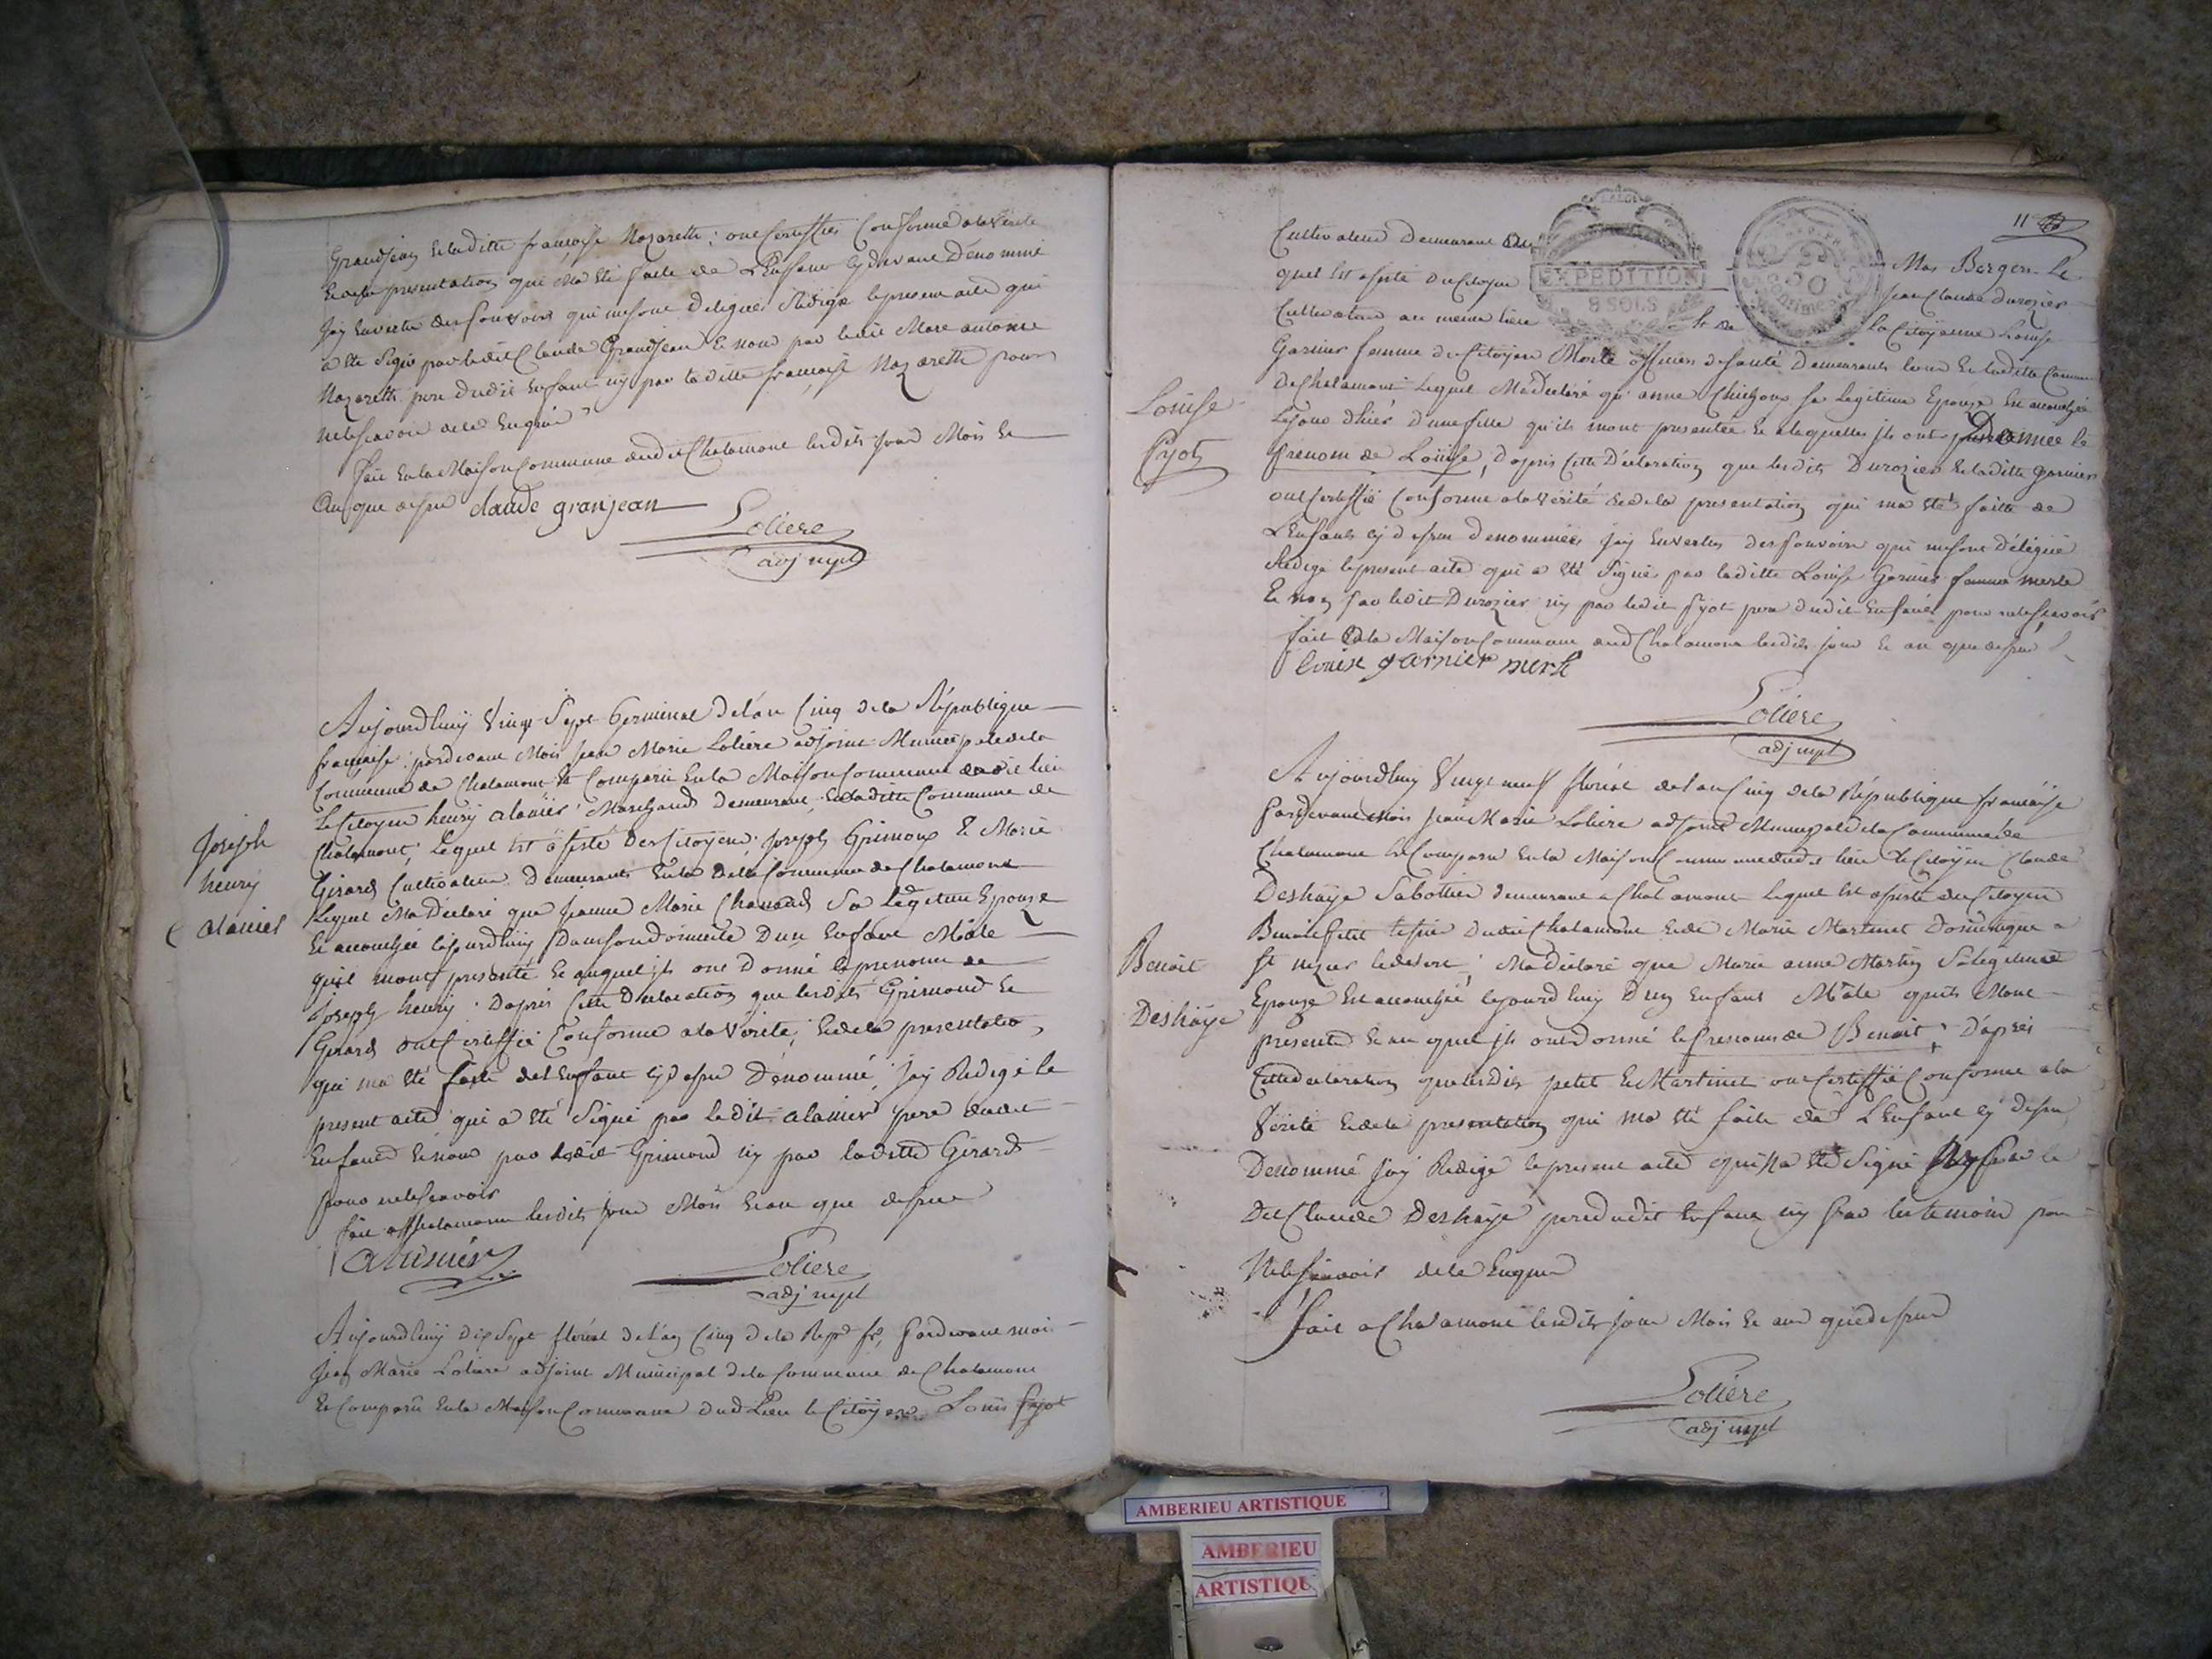 Grandjean & laditte françoise Nazareth; ont Certiffiés Conforme a la Vérité
& de la presentation qui ma été faite de L'Enfant cy devant Dénommé
Jay Envertu des pouvoirs qui me sont délégués Rédigé le present acte qui
a été Signé par ledit Claude Grandjean & non par ledit Marc antoine
Nazareth pere dudit Enfant ny par laditte françoise Nazareth pour
ne le scavoir de ce Enquis
fait en la Maison Commune dudit Chalamont lesdits jour Mois &
An que dessus claude granjean
Loliere
adj mpl
Aujourdhuy Vingt Sept Germinal de l'an Cinq de la République
française; pardevant Moi Jean Marie Loliere adjoint Municipale de la
Commune de Chalamont Est Comparu en la Maison Commune dudit lieu
Le Citoyen henry alanier Marchand demeurant en laditte Commune de
Chalamont; Lequel Est assisté des Citoyens Joseph Grimoux & Marie
Girard Cultivateur demeurants en la ditte Commune de Chalamont
Lequel Ma Déclaré que Jeanne Marie Sa Legitime Epouze
Est accouchée cejourdhuy dans son domicile D'un Enfant Mâle
quil mont presenté & auquel ils ont Donné le prenom de
Joseph henry. Dapres Cette Declaration que lesdits Grimoud &
Girard ont Certiffié Conforme a la Vérité, & de la presentation
qui ma été faite de l'Enfant cy dessus Dénommé, Jay Redigé le
present acte qui a été Signé par le dit alanier pere dudit
Enfant & non par ledit Grimoud ny par laditte Girard
pour ne le scavoir
fait a Chalamont lesdits jour Mois & an que dessus
Joseph
henry
alanier
Loliere
adj mpl
Aujourdhuy dix Sept floréal de l'an Cinq de la Repe fse, Pardevant moi
Jean Marie Loliere adjoint Municipal de la Commune de Chalamont
Est Comparû en la Maison Commune dud Lieu le Citoyen Louis fyot
11
Cultivateur demeurant Mas Bergen Le
quel Est assisté du Citoyen Jean Claude durozier
Cultivateur au meme lieu & de la Citoyenne Louise
EXPEDITION
8 SOLS
Garnier femme du Citoyen Merle officier de santé Demeurants tous En laditte Commune
de Chalamont Lequel Ma déclaré qu'anne sa Legitime Epouze Est accouchée
Le jour d'hier d'une fille qu'ils mont presentée & a laquelle ils ont Donnée le
prenom de Louise, dapres Cette Déclaration que lesdits Durozier & laditte garnier
ont Certiffié Conforme a la Vérité & de la presentation qui ma été faitte de
L'Enfant cy dessus denommée Jay Envertu des pouvoirs qui me sont délégué
Redigé le present acte qui a été Signé par laditte Louise Garnier femme merle
& non par ledit Durozier ny par ledit fyot pere dudit Enfant pour ne le scavoir
fait En la Maison Commune dud Chalamont lesdits jour & an que dessus
louise garnier merle
Louise
fyot
Loliere
adj mpl
Aujourdhuy Vingt neuf floréal de l'an Cinq de la République française
Pardevant Moi Jean Marie Loliere adjoint Municipale de la Commune de
Chalamont Est Comparu en la Maison Commune dudit lieu le Citoyen Claude
Deshaÿe Sabottier demeurant a Chalamont Lequel Est assisté du Citoyen
Benoit petit dudit Chalamont & de Marie Martinet Domestique a
St nizier le desert; Ma déclaré que Marie anne Martin Sa legitime
Epouze Est accouchée cejourdhuy D'un Enfant Mâle quils Mont
presenté & au quel ils ont donné le prenom de Benoit; D'après
Cette declaration que lesdits petit & Martinet ont Certiffié Conforme a la
Vérité & de la presentation qui ma été faite de L'Enfant cy dessus
Denommé Jay Redigé le present acte qui na été Signé
dit Claude Deshaÿe pere dudit Enfant ny par les temoins pour
Ne le scavoir de ce Enquis
fait a Chalamont lesdits jour Mois & an que dessus
Benoit
Deshaÿe
Loliére
adj mpl
AMBERIEU ARTISTIQUE
AMBERIEU
ARTISTIQUE